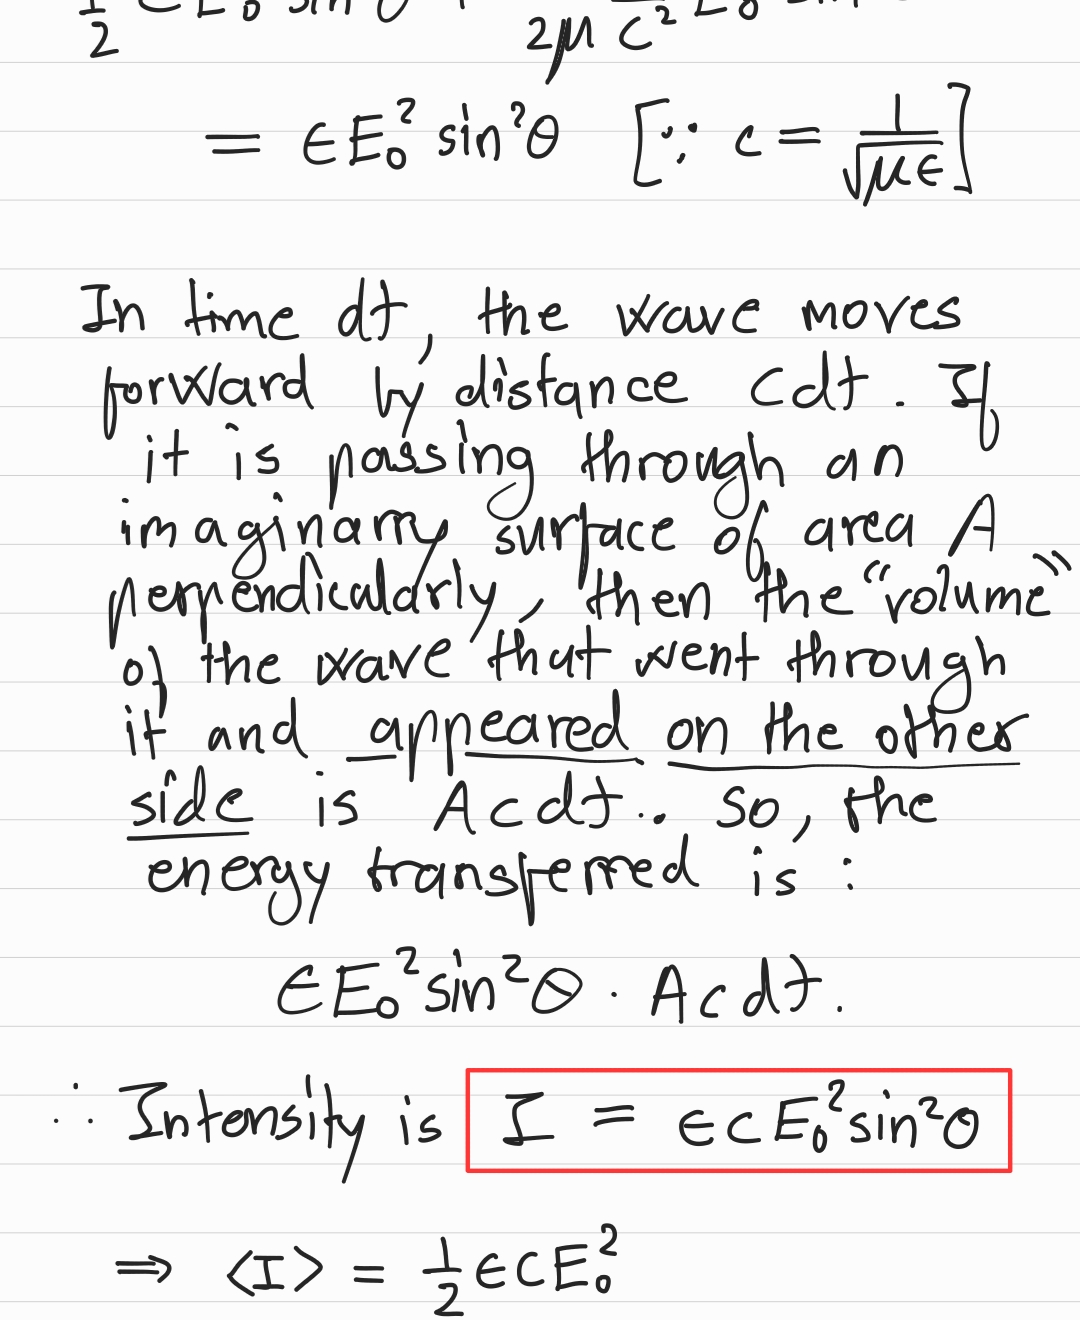 1/2 ϵ E₀² sin²θ + 1/2μ 1/c² E₀² sin²θ
= ϵE₀² sin²θ [∵ c = 1/√μϵ]
In time dt, the wave moves
forward by distance cdt. If
it is passing through an
imaginary surface of area A
perpendicularly, then the "volume"
of the wave that went through
it and appeared on the other
side is Acdt. So, the
energy transferred is :
ϵE₀² sin²θ · Acdt.
∴ Intensity is I = ϵcE₀² sin²θ
⇒ ⟨I⟩ = 1/2 ϵcE₀²